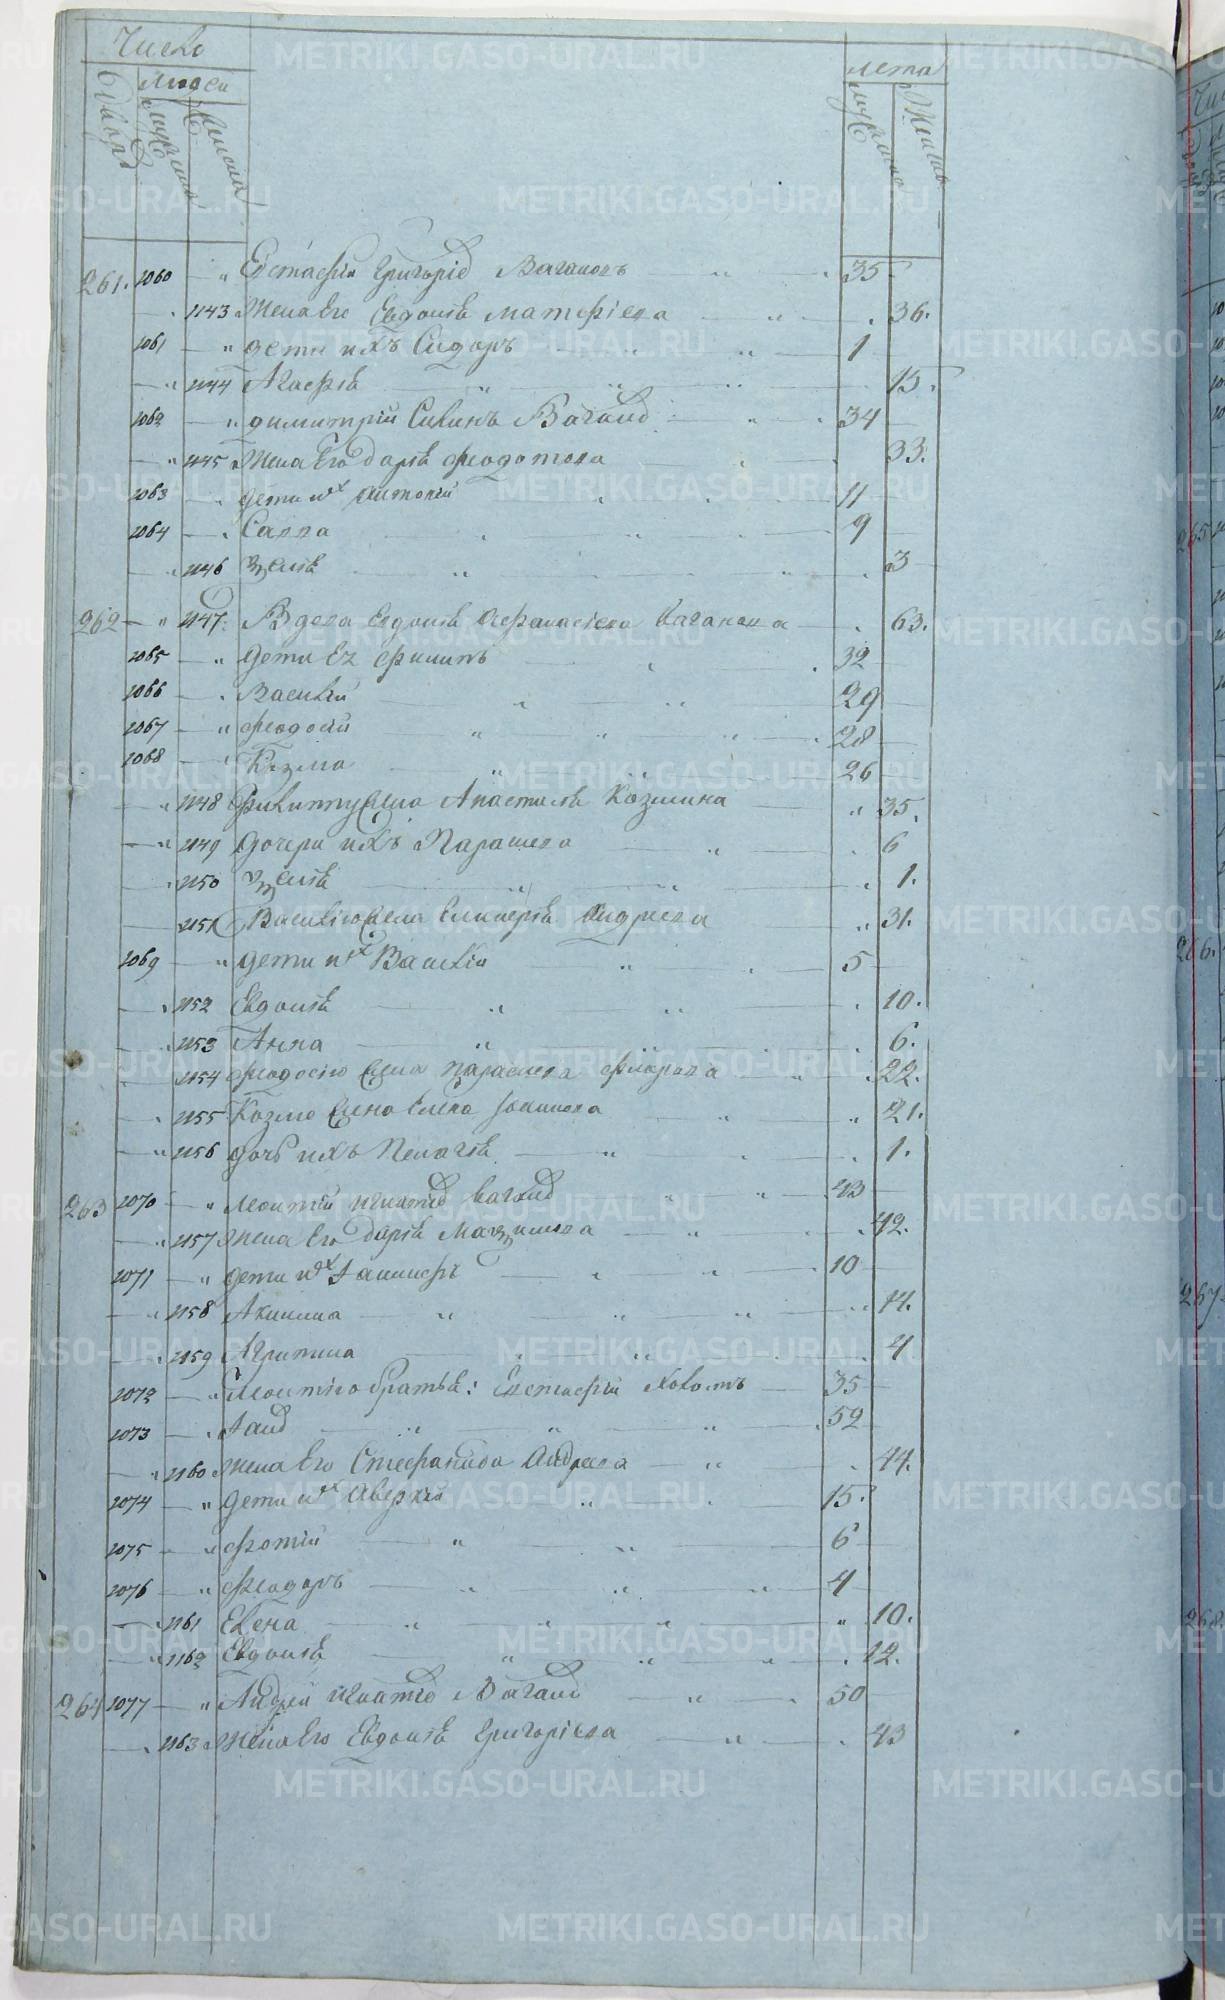 Число
людей
лета
дворъ мужеска женска
мужеска женска
261. 1060 Евстафій Григорьев Вагановъ 35
1143 Жена его Евдокія Матфіева 36.
1061 дети ихъ Сидоръ 1
1144 Агафія 13.
1062 Димитрій Силинъ Ваганов 34
1145 Жена его Дарія Феодотова 33.
1063 дети их Антоній 11
1064 Савва 9
1146 3
262 1147 Вдова Евдокія Афанасіева Ваганова 63.
1065 Дети Ея Филипъ 32
1066 Василій 29
1067 Феодосій 28
1068 Козма 26
1148 Филиппу жена Анастасія Козмина 35.
1149 Дочери ихъ Парасева 6
1150 1.
1151 Василію жена Андреева 31.
1069 дети их Василій 5
1152 Евдокія 10.
1153 Анна 6.
1154 Феодосію жена Парасева Флорова 22.
1155 Козме жена Елена 21.
1156 дочь ихъ Пелагія 1.
263 1070 Леонтій Игнатьев Ваганов 43
1157 Жена его Дарія Максимова 42.
1071 дети их 10
1158 Акилина 14.
1159 Агрипина 4
1072 Леонтію братья: Евстафій холостъ 35
1073 52
1160 Жена его Стефанида Андреева 44.
1074 Дети их Аверкій 15.
1075 Фотій 6
1076 Феодоръ 4
1161 Елена 10.
1162 Евдокія 12.
264 1077 Андрей Игнатьев Ваганов 50
1163 Жена его Евдокія Григоріева 43
METRIKI.GASO-URAL.RU